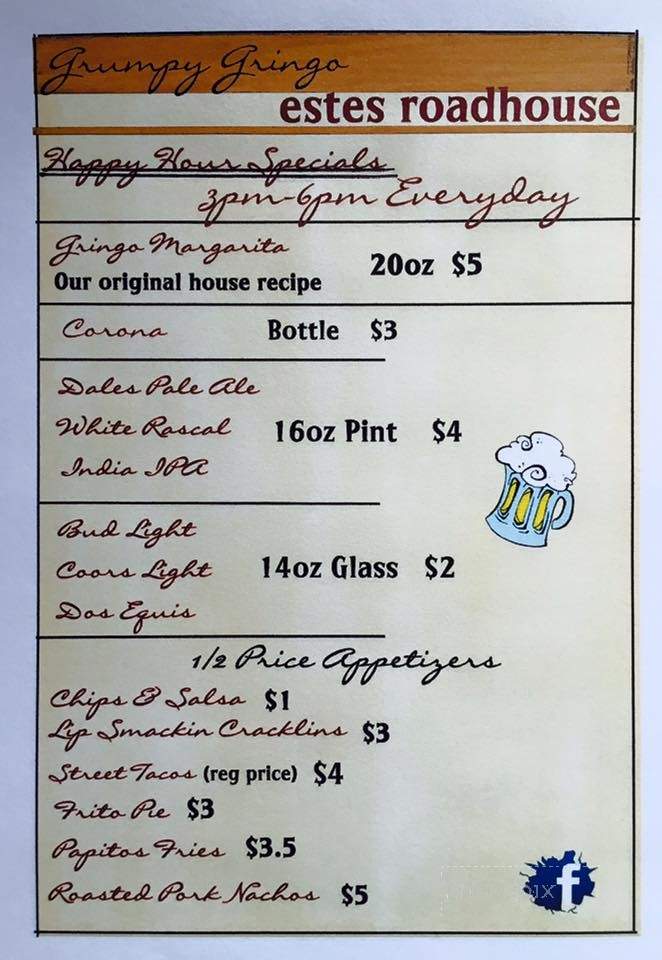 Grumpy Gringo
estes roadhouse
Happy Hour Specials
3pm-6pm Everyday
Gringo Margarita
Our original house recipe
20oz $5
Corona Bottle $3
Dales Pale Ale
White Rascal 16oz Pint $4
India IPA
Bud Light
Coors Light 14oz Glass $2
Dos Equis
1/2 Price Appetizers
Chips & Salsa $1
Lip Smackin Cracklins $3
Street Tacos (reg price) $4
Frito Pie $3
Papitos Fries $3.5
Roasted Pork Nachos $5
f